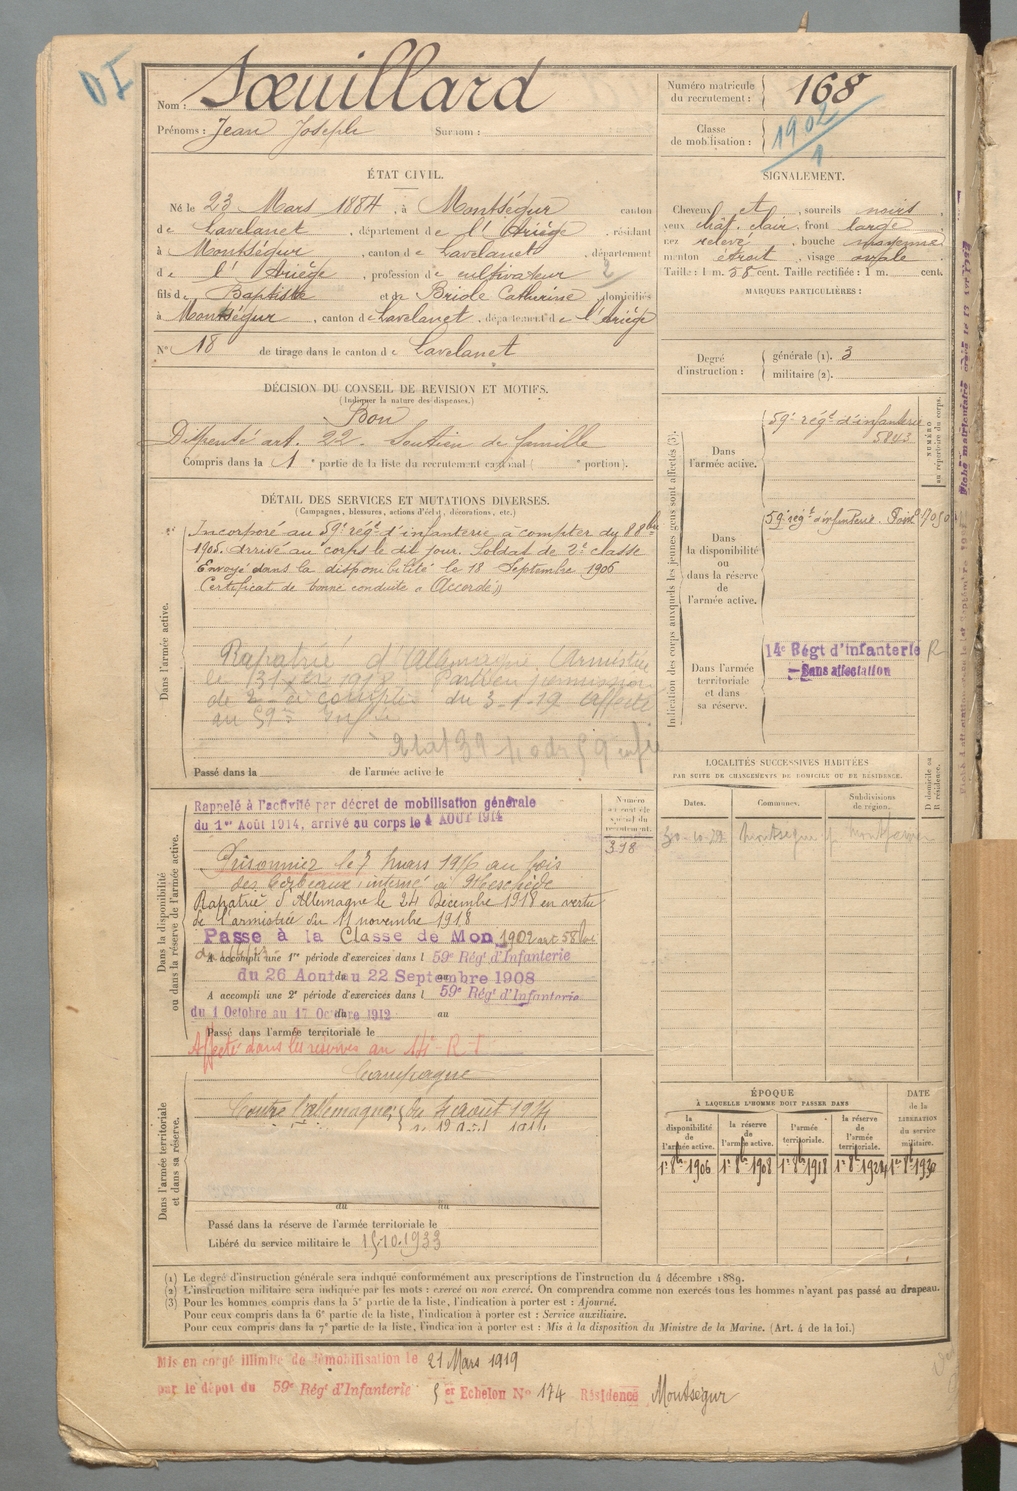 DI
Nom : Sœuillard
Prénoms : Jean Joseph Surnom :
Numéro matricule
du recrutement : 168
Classe
de mobilisation : 1902
1
ÉTAT CIVIL.
Né le 23 Mars 1884, à Montségur canton
de Lavelanet, département de l'Ariège, résidant
à Montségur, canton de Lavelanet, département
de l'Ariège, profession de cultivateur 2
fils de Baptiste et de Briole Catherine, domiciliés
à Montségur, canton de Lavelanet, département de l'Ariège
N° 18 de tirage dans le canton de Lavelanet
SIGNALEMENT.
Cheveux et, sourcils noirs
yeux chât. clair, front large
nez relevé, bouche moyenne
menton étroit, visage ovale
Taille : 1 m. 58 cent. Taille rectifiée : 1 m. cent.
MARQUES PARTICULIÈRES :
Degré
d'instruction :
générale (1). 3
militaire (2).
DÉCISION DU CONSEIL DE REVISION ET MOTIFS.
(Indiquer la nature des dispenses.)
Bon
Dispensé art. 22. Soutien de famille
Compris dans la 1 e partie de la liste du recrutement cantonal ( e portion).
DÉTAIL DES SERVICES ET MUTATIONS DIVERSES.
(Campagnes, blessures, actions d'éclat, décorations, etc.)
Dans l'armée active.
Incorporé au 59e régt d'infanterie à compter du 8 8bre
1905. arrivé au corps le dit jour. Soldat de 2e classe
Envoyé dans la disponibilité le 18 Septembre 1906
Certificat de bonne conduite « Accordé »
Rapatrié d'Allemagne. Armistice
le 1918 Part en permission
de à compter du 3-1-19 affecté
au 59e
Passé dans la de l'armée active le
Indication des corps auxquels les jeunes gens sont affectés (3).
Dans
l'armée active.
59e régt d'infanterie
5843
NUMÉRO
au répertoire du corps.
Dans
la disponibilité
ou
dans la réserve
de
l'armée active.
59e régt d'infanterie.
Dans l'armée
territoriale
et dans
sa réserve.
14e Régt d'infanterie R
Sans affectation
LOCALITÉS SUCCESSIVES HABITÉES
PAR SUITE DE CHANGEMENTS DE DOMICILE OU DE RÉSIDENCE.
Dates. Communes. Subdivisions
de région.
D domicile ou
R résidence.
30-10-29 Montségur
Dans la disponibilité
ou dans la réserve de l'armée active.
Rappelé à l'activité par décret de mobilisation générale
du 1er Août 1914, arrivé au corps le 4 AOUT 1914
318
Prisonnier le 7 mars 1916 au bois
des Corbeaux, interné à Meschède
Rapatrié d'Allemagne le 24 Décembre 1918 en vertu
de l'armistice du 11 novembre 1918
Passe à la Classe de Mon 1902 art 58
A accompli une 1re période d'exercices dans l 59e Régt d'Infanterie
du 26 Aout au 22 Septembre 1908
A accompli une 2e période d'exercices dans l 59e Régt d'Infanterie
du 1 Octobre au 17 Octobre 1912 au
Passé dans l'armée territoriale le
Affecté dans les réserves au 14e R I
Dans l'armée territoriale
et dans sa réserve.
Campagne
Contre l'allemagne, du 4 août 1914
au
Passé dans la réserve de l'armée territoriale le
Libéré du service militaire le 15-10-1933
ÉPOQUE
À LAQUELLE L'HOMME DOIT PASSER DANS
la
disponibilité
de
l'armée active.
la réserve
de
l'armée active.
l'armée
territoriale.
la réserve
de
l'armée
territoriale.
DATE
de la
LIBÉRATION
du service
militaire.
1er 8bre 1906 1er 8bre 1908 1er 8bre 1918 1er 8bre 1924 1er 8bre 1930
(1) Le degré d'instruction générale sera indiqué conformément aux prescriptions de l'instruction du 4 décembre 1889.
(2) L'instruction militaire sera indiquée par les mots : exercé ou non exercé. On comprendra comme non exercés tous les hommes n'ayant pas passé au drapeau.
(3) Pour les hommes compris dans la 5e partie de la liste, l'indication à porter est : Ajourné.
Pour ceux compris dans la 6e partie de la liste, l'indication à porter est : Service auxiliaire.
Pour ceux compris dans la 7e partie de la liste, l'indication à porter est : Mis à la disposition du Ministre de la Marine. (Art. 4 de la loi.)
Mis en congé illimité de démobilisation le 21 Mars 1919
par le dépot du 59e Régt d'Infanterie 5 er Echelon N° 174 Résidence Montségur